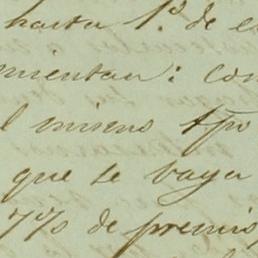 hasta 1º de e
mientan: con
l mismo tpo
que se vaya
7% de premio,